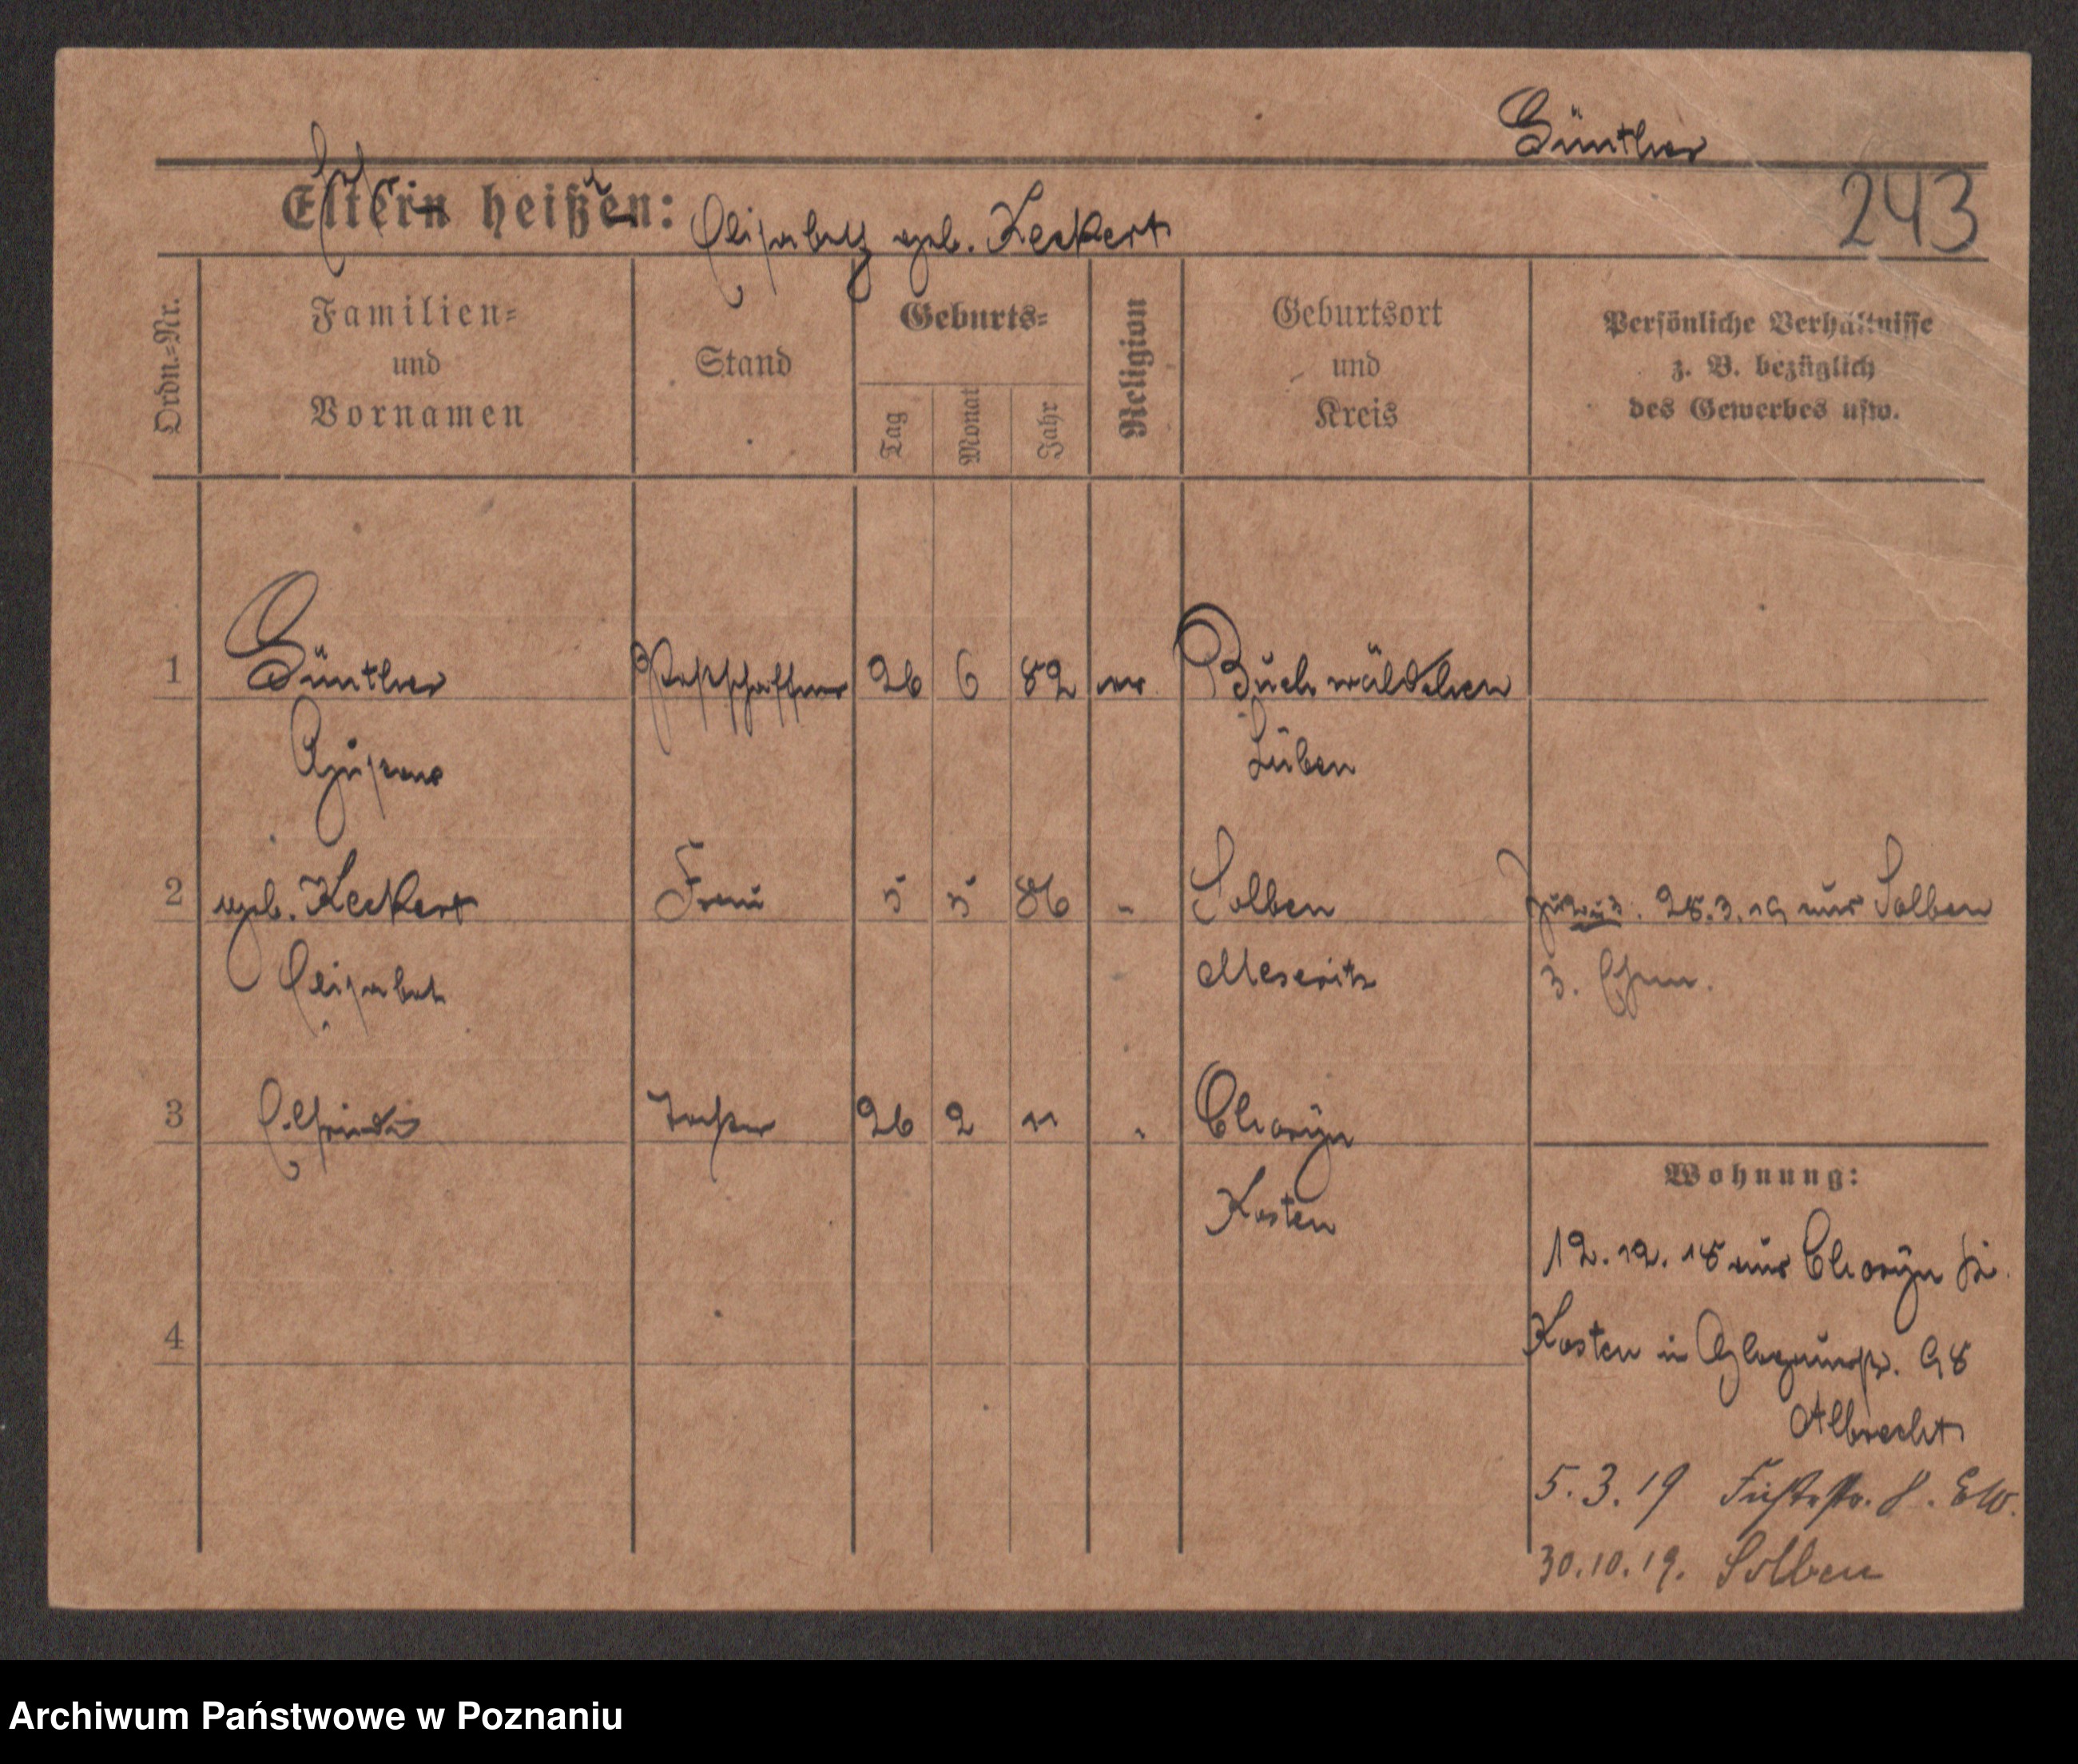 Günther
243
Eltern heißen: Elisabeth geb. Keckert
Ordn.=Nr.
Familien=
und
Vornamen
Stand
Geburts=
Tag
Monat
Jahr
Religion
Geburtsort
und
Kreis
Persönliche Verhältnisse
z. B. bezüglich
des Gewerbes usw.
1 Günther Postschaffner 26 6 82 ev Buchwäldchen
Gustav Lüben
2 geb. Keckert Frau 5 5 86 - Solben 28.3.19 aus Solben
Elisabet Meseritz z. Ehem.
3 Elfriede Tochter 26 2 11 Choryn
Kosten
Wohnung:
12.12.18 aus Choryn Kr.
4
Kosten in Glogauerstr. 98
Albrecht
5.3.19 8. EW.
30.10.19. Solben
Archiwum Państwowe w Poznaniu